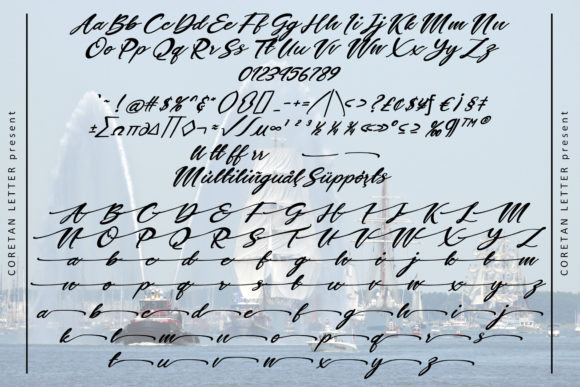 Aa Bb Cc Dd Ee Ff Gg Hh Ii Jj Kk Ll Mm Nn
Oo Pp Qq Rr Ss Tt Uu Vv Ww Xx Yy Zz
0123456789
Multilingual Supports
A B C D E F G H I J K L M
N O P Q R S T U V W X Y Z
a b c d e f g h i j k l m
n o p q r s t u v w x y z
a b c d e f g h i j
k l m n o p q r s
t u v w x y z
CORETAN LETTER present
CORETAN LETTER present